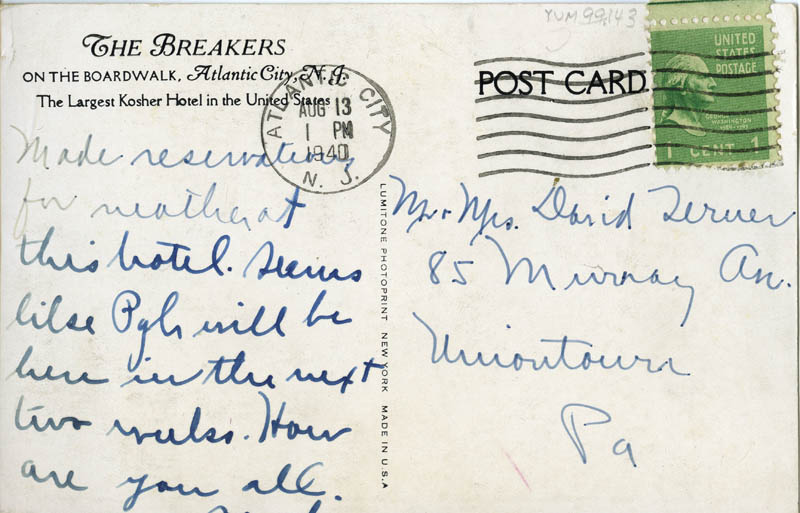 YUM 99.143
THE BREAKERS
ON THE BOARDWALK, Atlantic City, N.J.
The Largest Kosher Hotel in the United States
POST CARD
UNITED
STATES
POSTAGE
GEORGE
WASHINGTON
1 CENT 1
ATLANTIC CITY
AUG 13
1 PM
1940
N. J.
Made reservations
for mother at
this hotel. Seems
like Pgh will be
here in the next
two weeks. How
are you all.
LUMITONE PHOTOPRINT NEW YORK MADE IN U.S.A
Mr + Mrs. David
85 Murray Av.
Uniontown
Pa